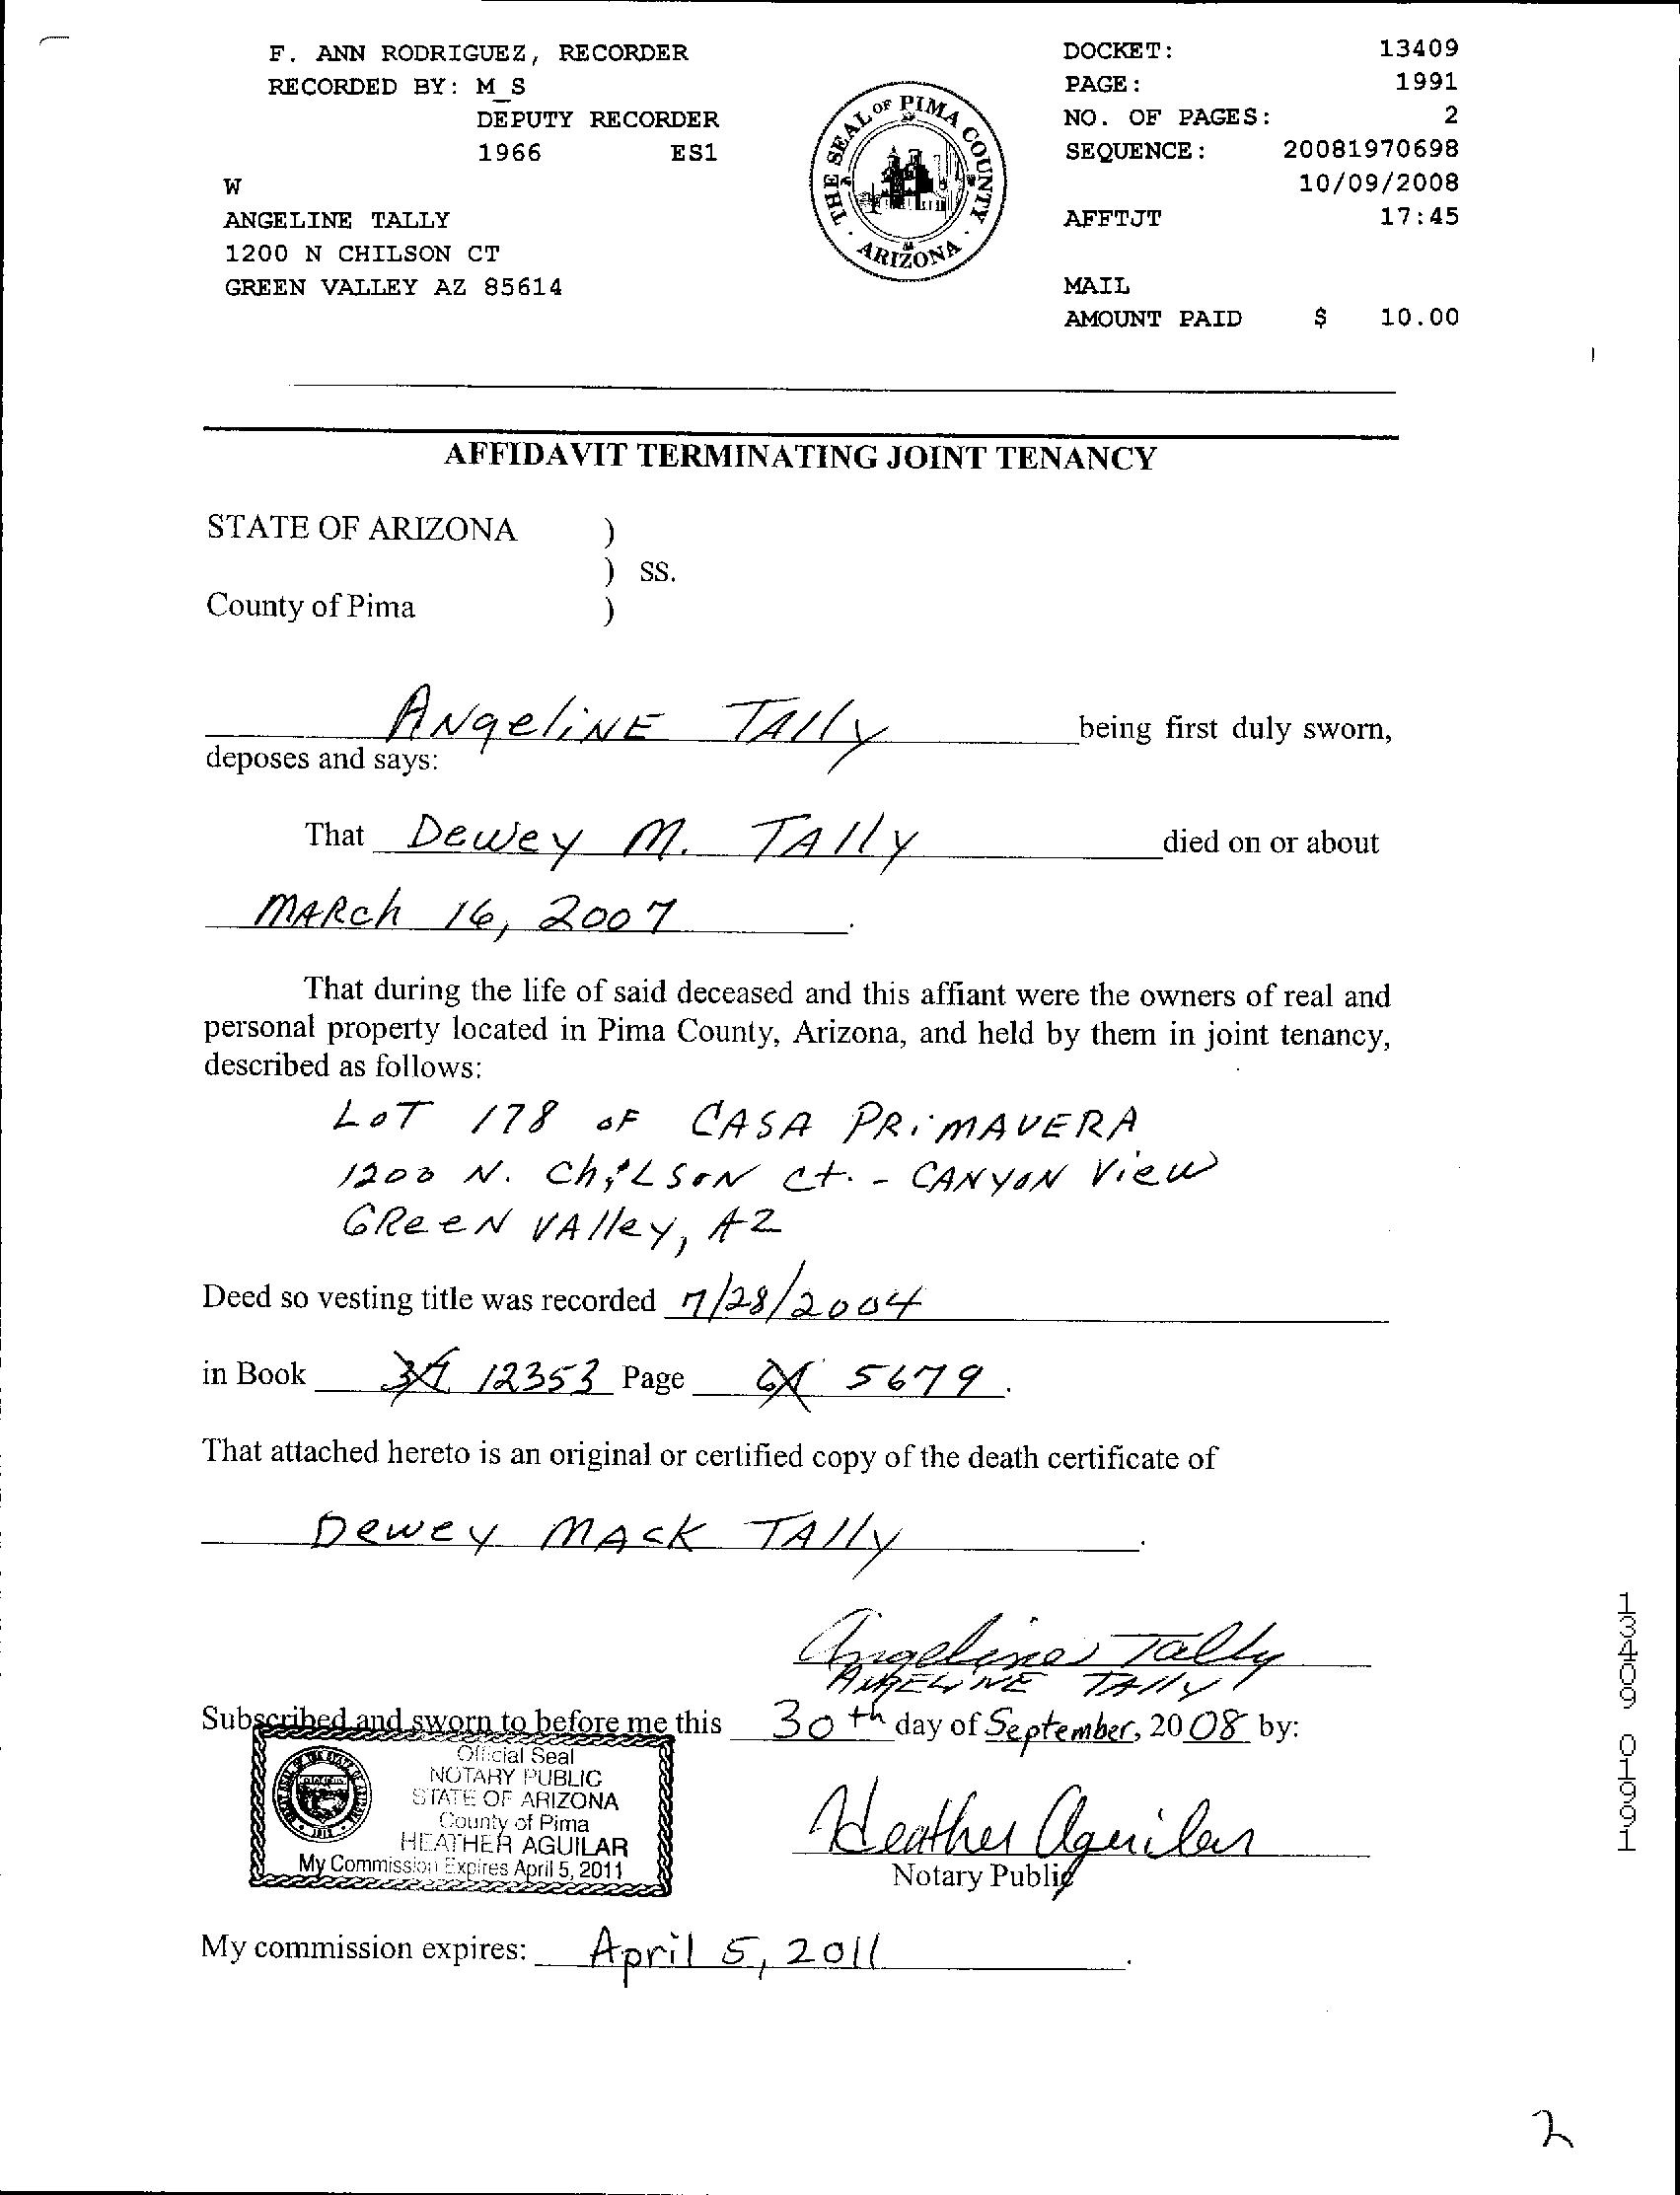 F. ANN RODRIGUEZ, RECORDER
RECORDED BY: M_S
DEPUTY RECORDER
1966 ES1
W
ANGELINE TALLY
1200 N CHILSON CT
GREEN VALLEY AZ 85614
THE SEAL OF PIMA COUNTY
ARIZONA
DOCKET: 13409
PAGE: 1991
NO. OF PAGES: 2
SEQUENCE: 20081970698
10/09/2008
AFFTJT 17:45
MAIL
AMOUNT PAID $ 10.00
AFFIDAVIT TERMINATING JOINT TENANCY
STATE OF ARIZONA )
) SS.
County of Pima )
ANgeliNE TAlly being first duly sworn,
deposes and says:
That Dewey M. TAlly died on or about
MARch 16, 2007.
That during the life of said deceased and this affiant were the owners of real and
personal property located in Pima County, Arizona, and held by them in joint tenancy,
described as follows:
LOT 178 OF CASA PRiMAVERA
1200 N. ChiLSON Ct. - CANYON View
GReeN VAlley, AZ
Deed so vesting title was recorded 7/28/2004
in Book 12353 Page 5679.
That attached hereto is an original or certified copy of the death certificate of
Dewey MACK TAlly.
Angeline Tally
ANGELINE TAlly
Subscribed and sworn to before me this 30th day of September, 2008 by:
Official Seal
NOTARY PUBLIC
STATE OF ARIZONA
County of Pima
HEATHER AGUILAR
My Commission Expires April 5, 2011
Heather Aguilar
Notary Public
My commission expires: April 5, 2011.
13409 01991
2